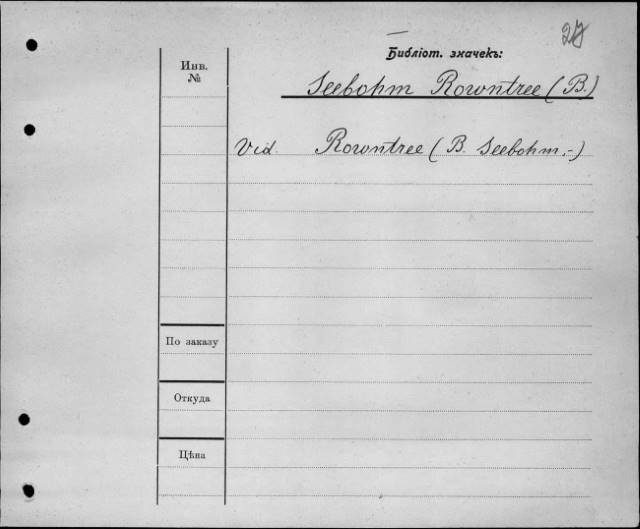 Библіот. значекъ:
Инв.
№
Seebohm Rowntree (B.)
Vid. Rowntree (B. Seebohm.-)
По заказу
Откуда
Цѣна